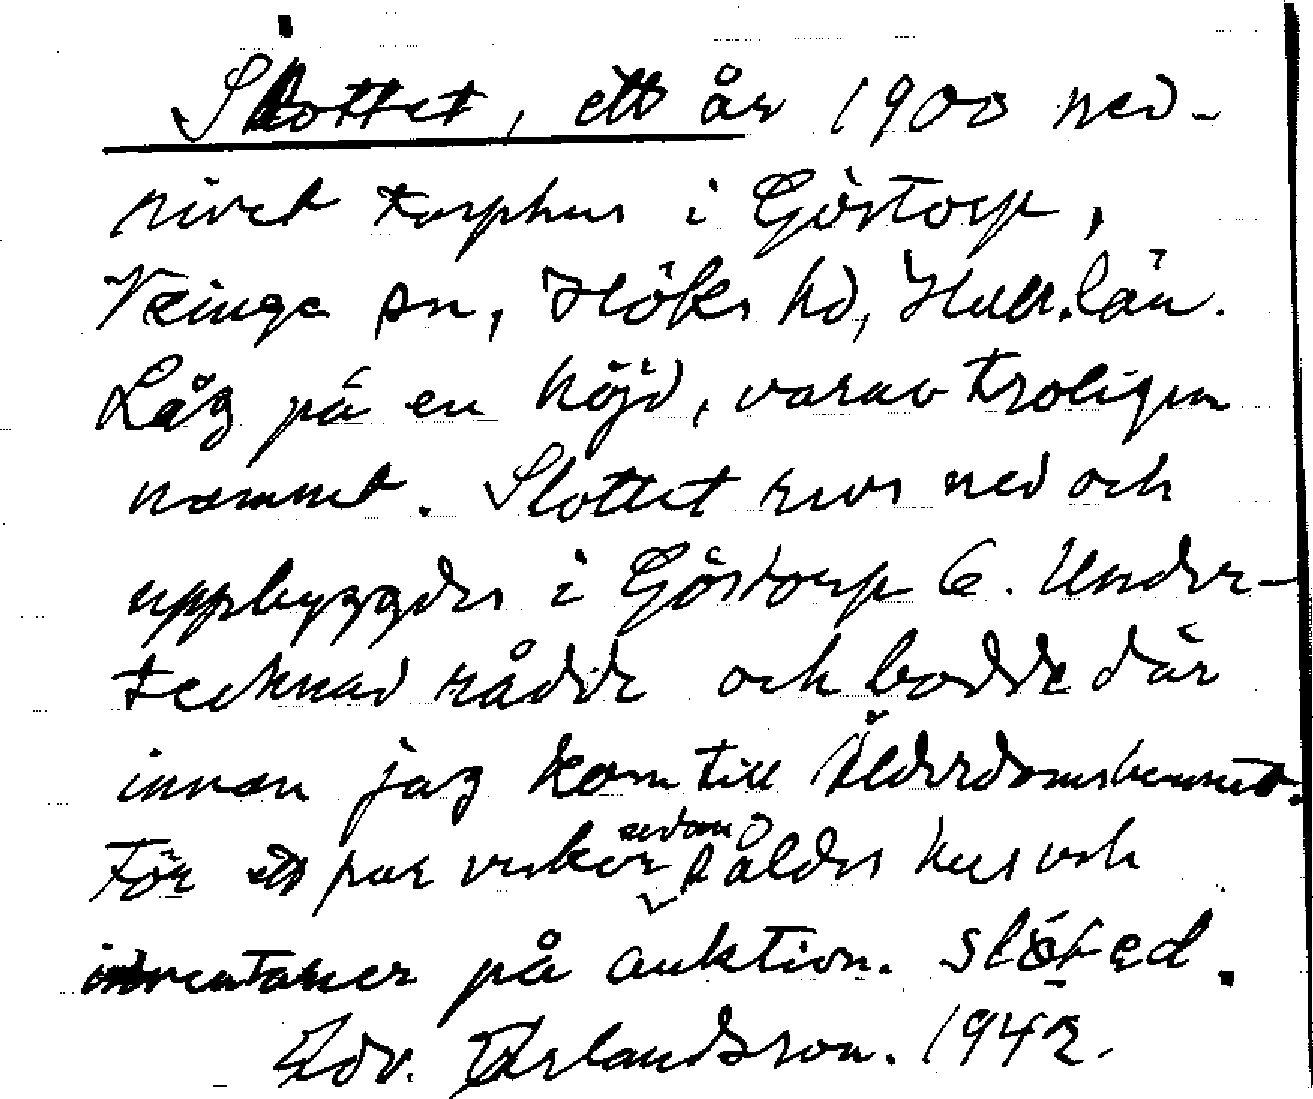 Slottet, ett år 1900 ned-
rivet torphus i Göstorp,
Veinge sn, Höks hd, Hall. län.
Låg på en höjd, varav troligen
namnet. Slottet revs ned och
uppbyggdes i Göstorp 6. Under-
tecknad rådde och bodde där
innan jag kom till Ålderdomshemmet.
För ett par veckor sedan såldes hus och
inventarier på auktion.
Edv. Erlandsson. 1942.